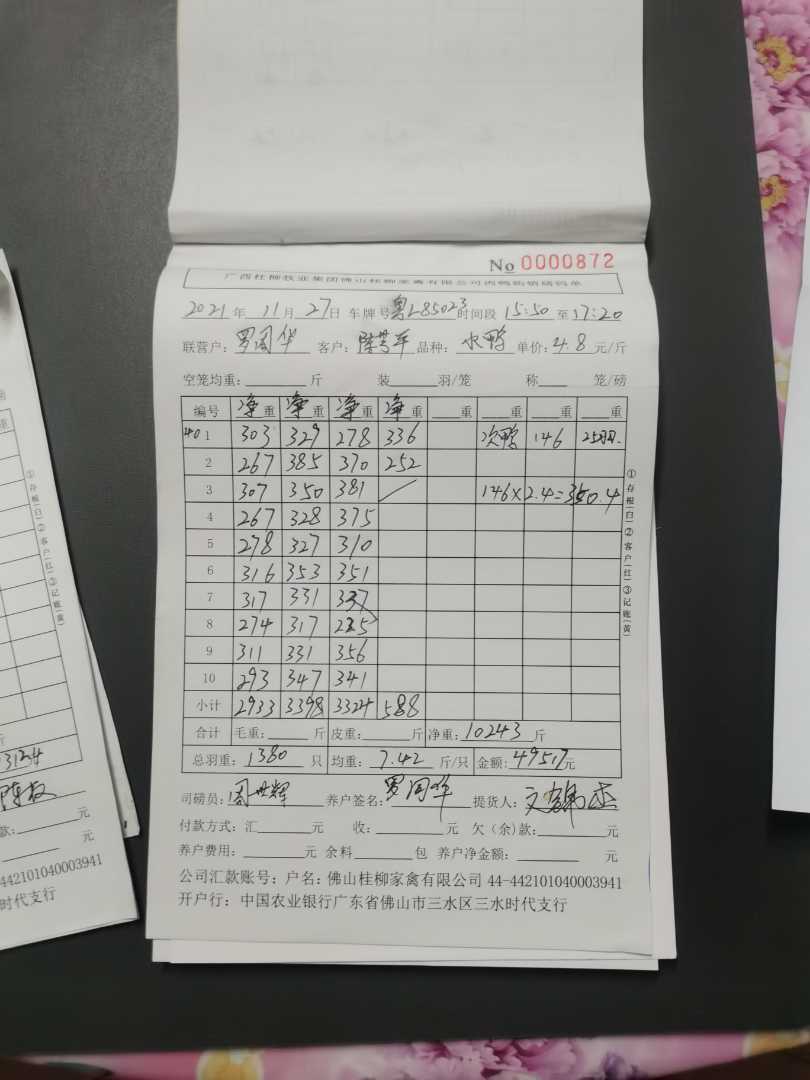 No 0000872
广西桂柳牧业集团佛山桂柳家禽有限公司肉鸭购销磅码单
2021年 11月 27日 车牌号 粤L85023 时间段 15:50 至 17:20
联营户: 罗国华 客户: 品种: 水鸭 单价: 4.8 元/斤
空笼均重: 斤 装 羽/笼 称 笼/磅
编号 净重 净重 净重 净重 重 重 重 重
40 1 303 329 278 336 次鸭 146 25羽.
2 267 385 370 252
3 307 350 381 146×2.4=350.4
4 267 328 375
5 278 327 310
6 316 353 351
7 317 331 337
8 274 317 225
9 311 331 356
10 293 347 341
小计 2933 3398 3324 588
合计 毛重: 斤 皮重: 斤 净重: 10243 斤
总羽重: 1380 只 均重: 7.42 斤/只 金额: 49517元
司磅员: 周世辉 养户签名: 罗国华 提货人:
付款方式: 汇 元 收: 元 欠(余)款: 元
养户费用: 元 余料 包 养户净金额: 元
公司汇款账号: 户名: 佛山桂柳家禽有限公司 44-442101040003941
开户行: 中国农业银行广东省佛山市三水区三水时代支行
①存根(白)②客户(红)③记账(黄)
①存根(白)②客户(红)③记账(黄)
斤
3134
款: 元
元
442101040003941
时代支行